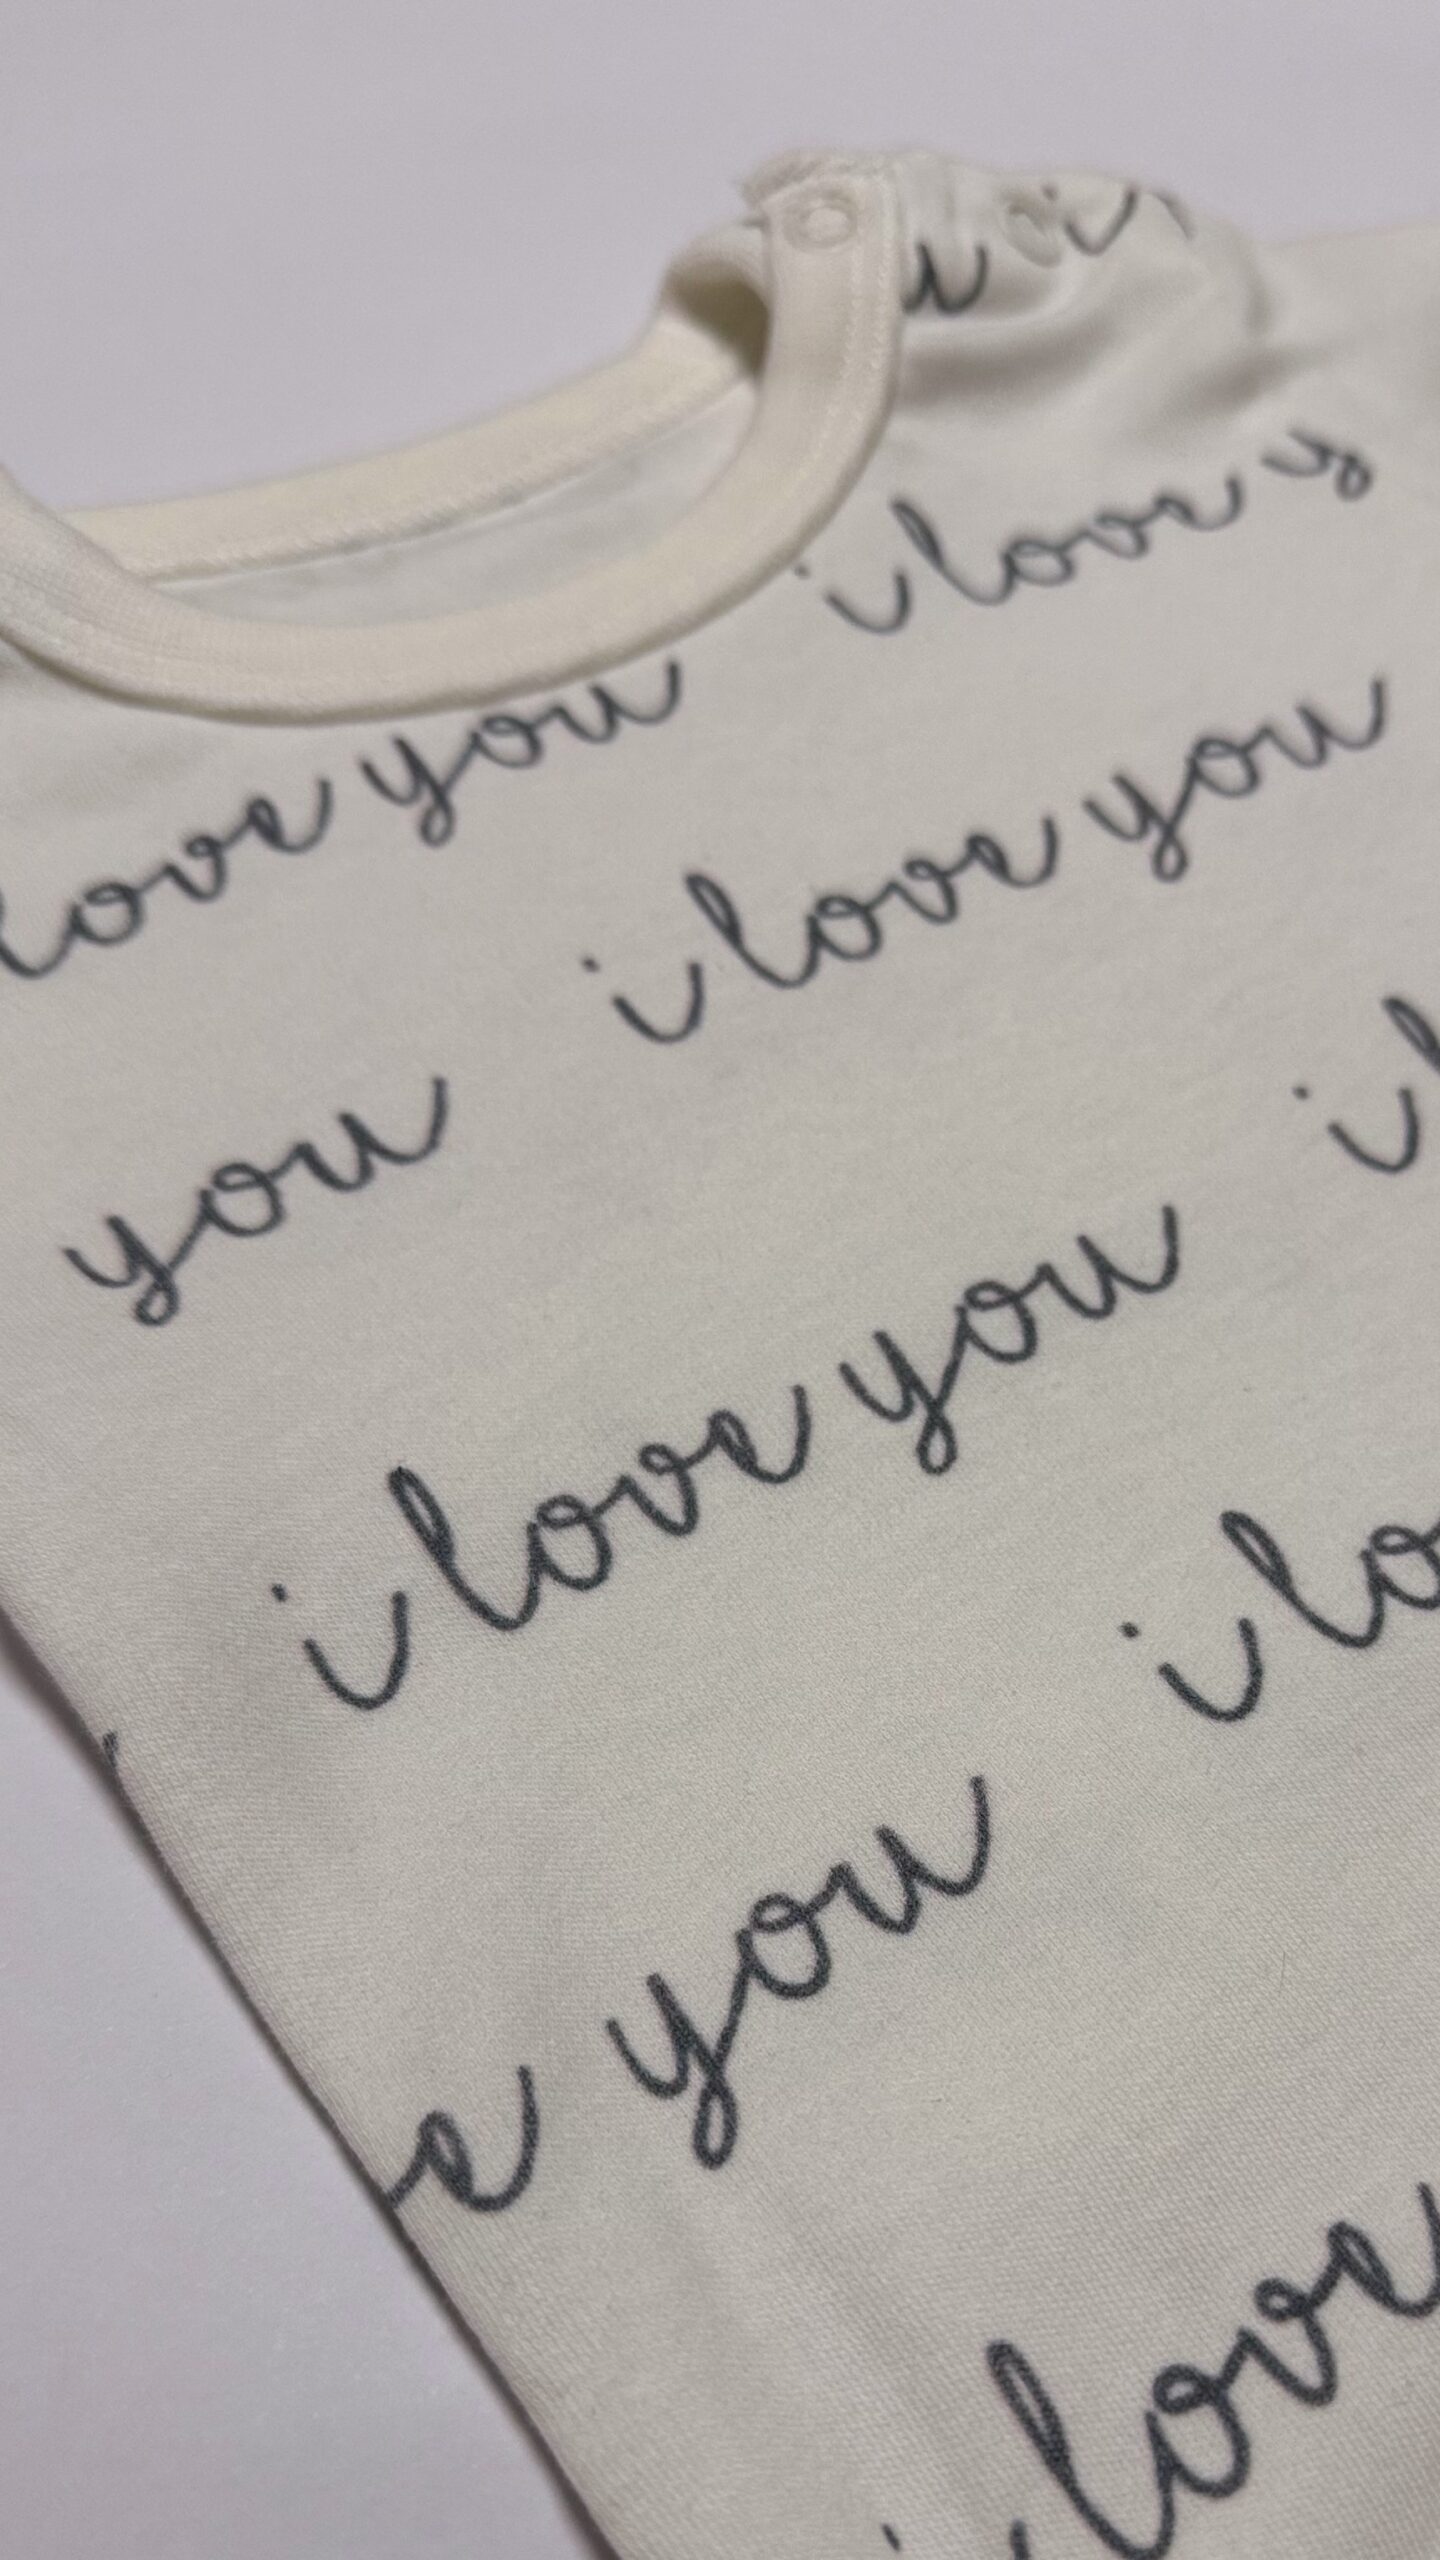 u i
i love y
love you
i love you
you
i l
i love you
i lo
e you
i love